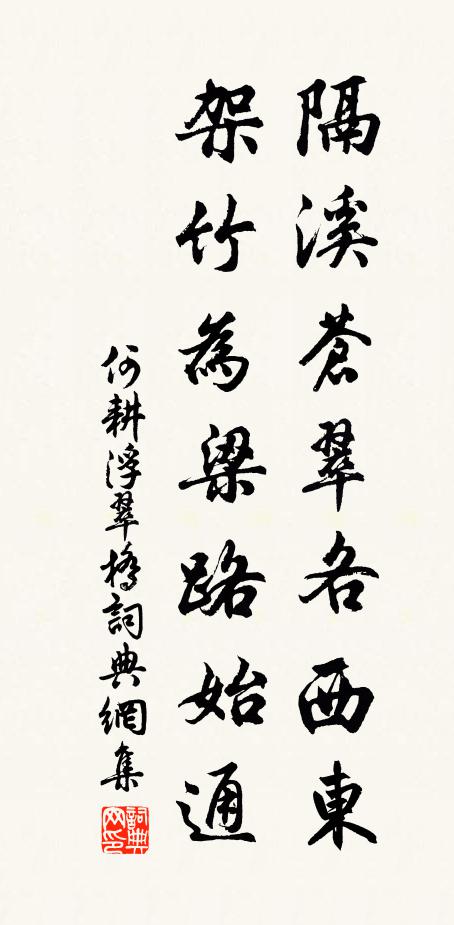 隔溪蒼翠各西東
架竹為梁路始通
何耕浮翠橋詞典網集
詞典网印